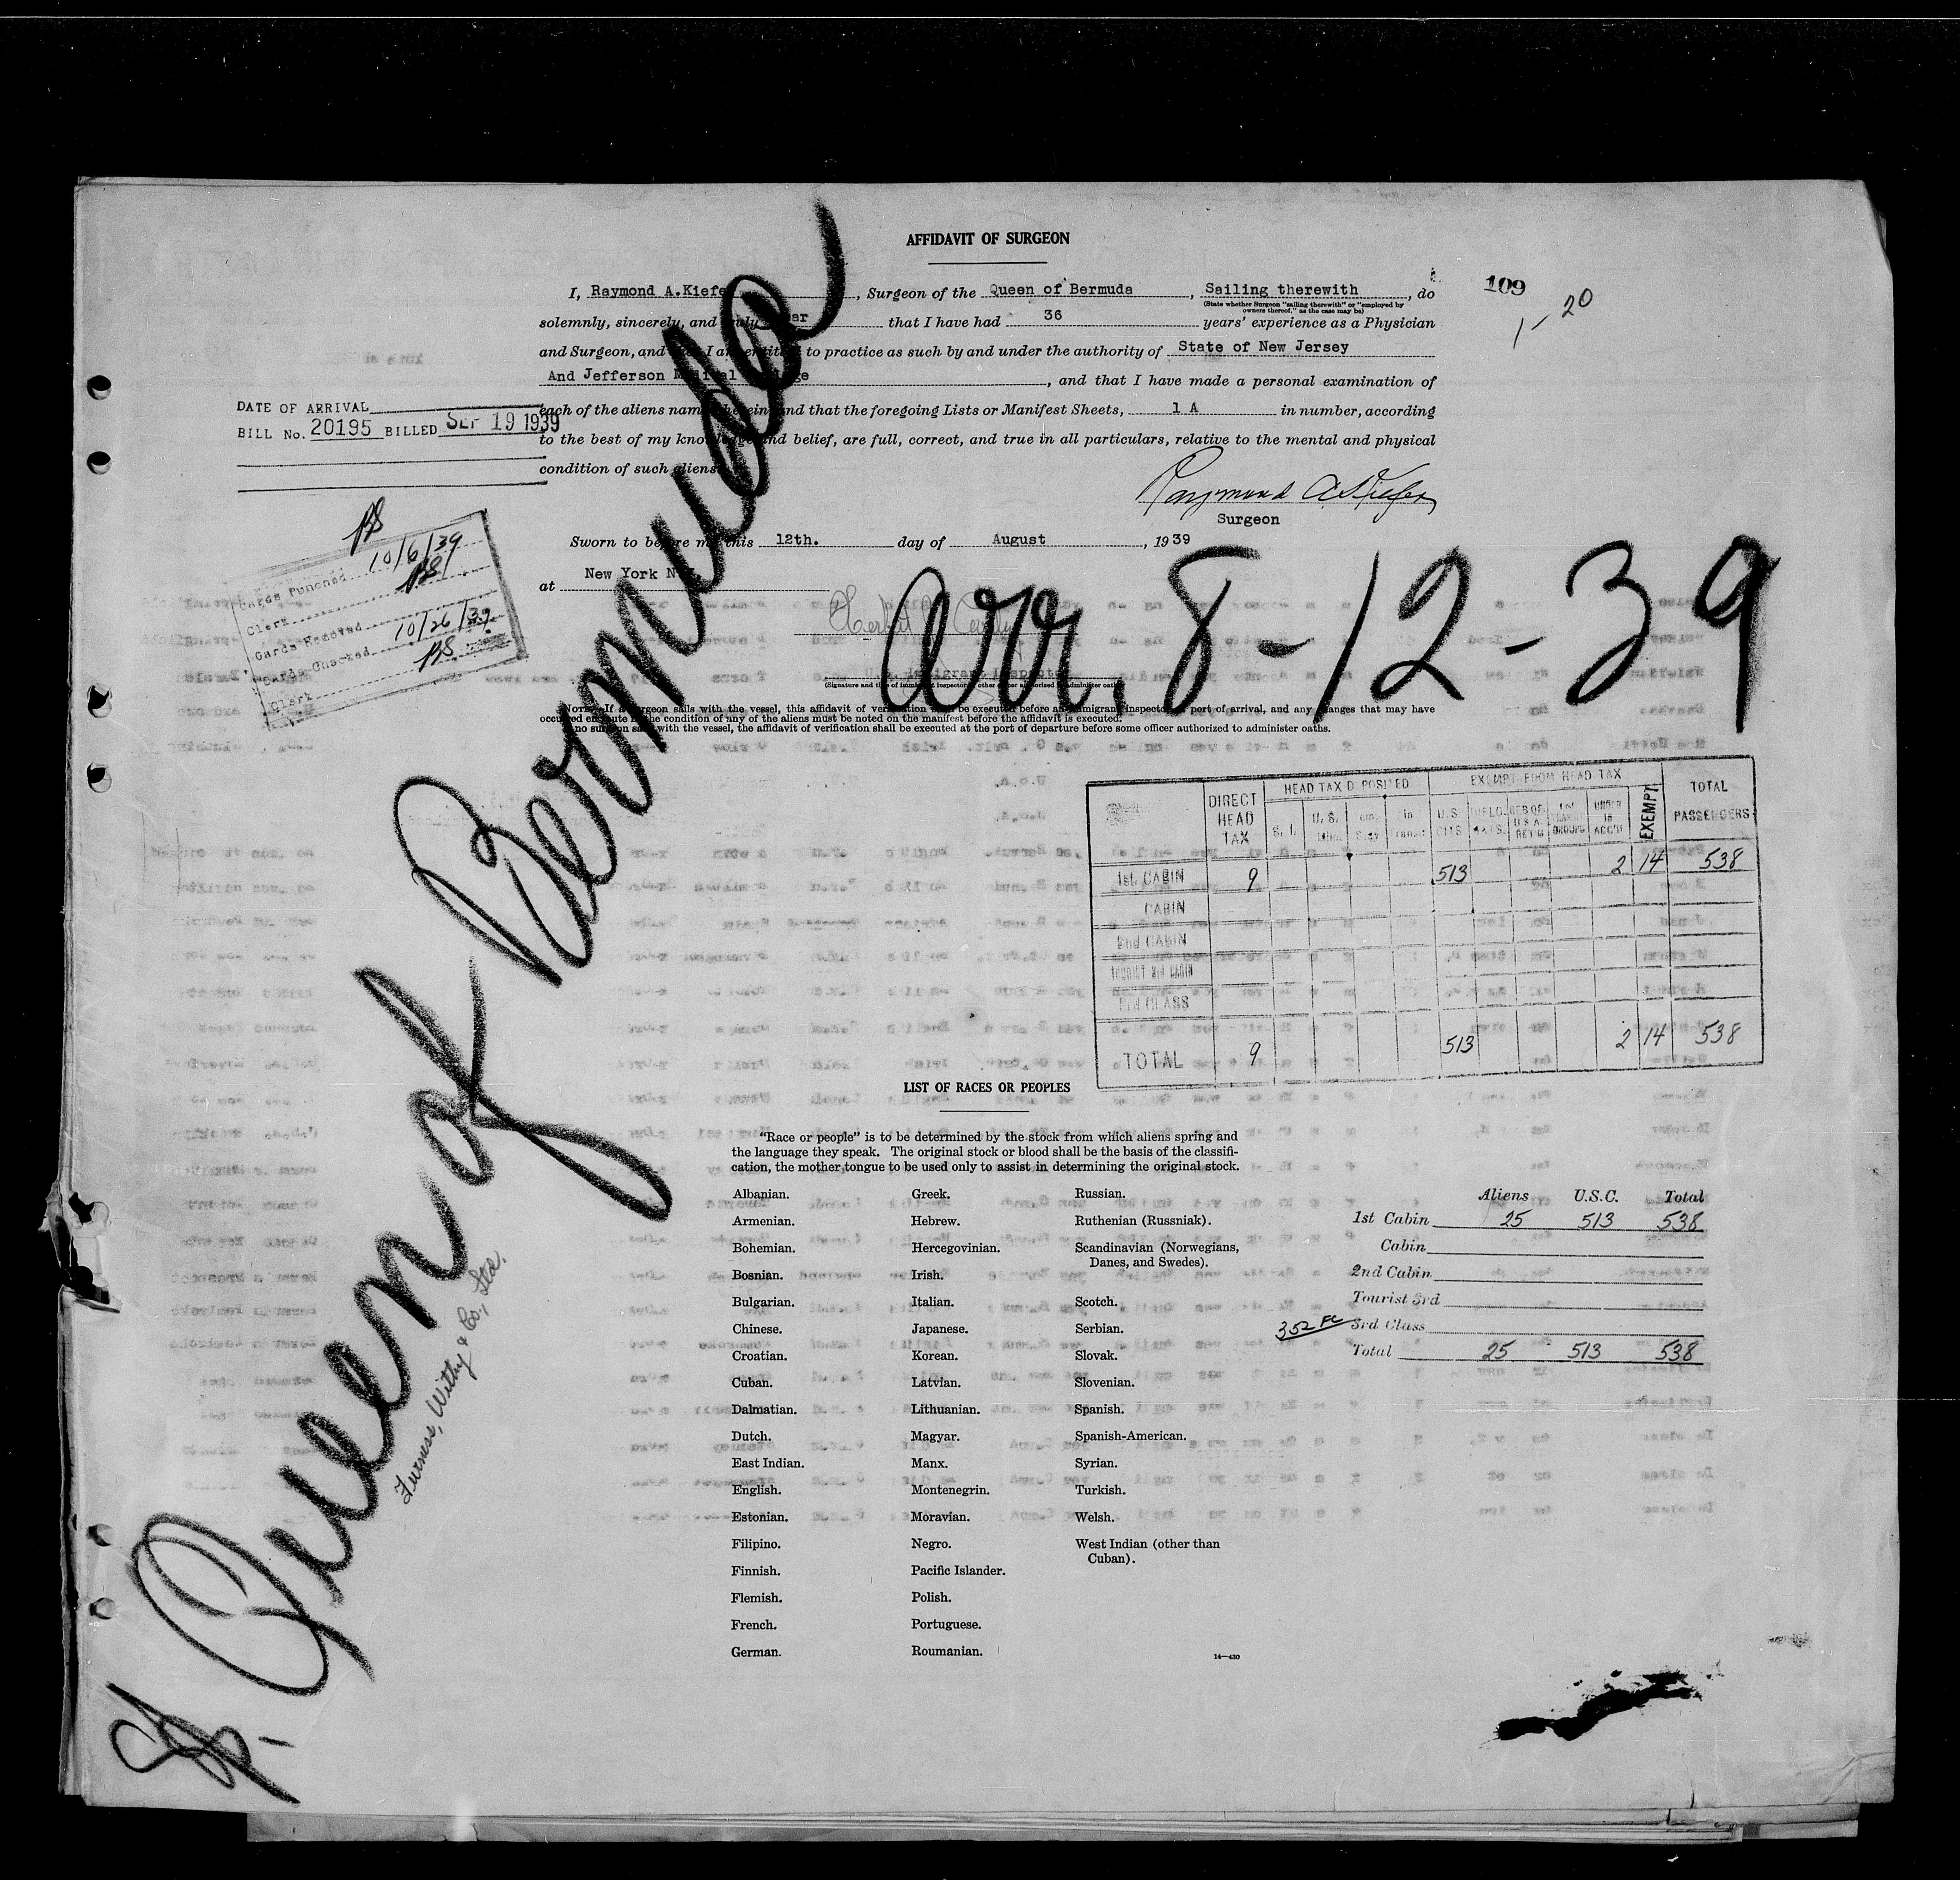 AFFIDAVIT OF SURGEON
I, Raymond A.Kiefe , Surgeon of the Queen of Bermuda , Sailing therewith , do
(State whether Surgeon "sailing therewith" or "employed by
owners thereof," as the case may be)
109
1-20
solemnly, sincerely, and that I have had 36 years' experience as a Physician
and Surgeon, and I am to practice as such by and under the authority of State of New Jersey
And Jefferson , and that I have made a personal examination of
each of the aliens named herein, and that the foregoing Lists or Manifest Sheets, 1 A in number, according
to the best of my knowledge and belief, are full, correct, and true in all particulars, relative to the mental and physical
condition of such aliens
DATE OF ARRIVAL
BILL No. 20195 BILLED SEP 19 1939
Raymond A. Kiefer
Surgeon
Sworn to before me this 12th. day of August , 1939
at New York N
Cards Punched 10/6/39
Clerk
Cards Removed
Cards Checked 10/26/39
Clerk
Arr. 8-12-39
S. Queen of Bermuda
Furness, Withy & Co., Ltd.
(Signature and title of immigrant inspector or other officer authorized to administer oaths)
NOTE.—If a surgeon sails with the vessel, this affidavit of verification shall be executed before an immigrant inspector at port of arrival, and any changes that may have
occurred en route in the condition of any of the aliens must be noted on the manifest before the affidavit is executed.
no surgeon sails with the vessel, the affidavit of verification shall be executed at the port of departure before some officer authorized to administer oaths.
DIRECT HEAD TAX HEAD TAX DEPOSITED EXEMPT FROM HEAD TAX EXEMPT TOTAL PASSENGERS
U.S. CITS.
1st CABIN 9 513 2 14 538
CABIN
2nd CABIN
TOURIST 3rd CABIN
3rd CLASS
TOTAL 9 513 2 14 538
LIST OF RACES OR PEOPLES
"Race or people" is to be determined by the stock from which aliens spring and
the language they speak. The original stock or blood shall be the basis of the classifi-
cation, the mother tongue to be used only to assist in determining the original stock.
Albanian.
Armenian.
Bohemian.
Bosnian.
Bulgarian.
Chinese.
Croatian.
Cuban.
Dalmatian.
Dutch.
East Indian.
English.
Estonian.
Filipino.
Finnish.
Flemish.
French.
German.
Greek.
Hebrew.
Hercegovinian.
Irish.
Italian.
Japanese.
Korean.
Latvian.
Lithuanian.
Magyar.
Manx.
Montenegrin.
Moravian.
Negro.
Pacific Islander.
Polish.
Portuguese.
Roumanian.
Russian.
Ruthenian (Russniak).
Scandinavian (Norwegians,
Danes, and Swedes).
Scotch.
Serbian.
Slovak.
Slovenian.
Spanish.
Spanish-American.
Syrian.
Turkish.
Welsh.
West Indian (other than
Cuban).
14—430
Aliens U.S.C. Total
1st Cabin 25 513 538
Cabin
2nd Cabin
Tourist 3rd
352 FC 3rd Class
Total 25 513 538